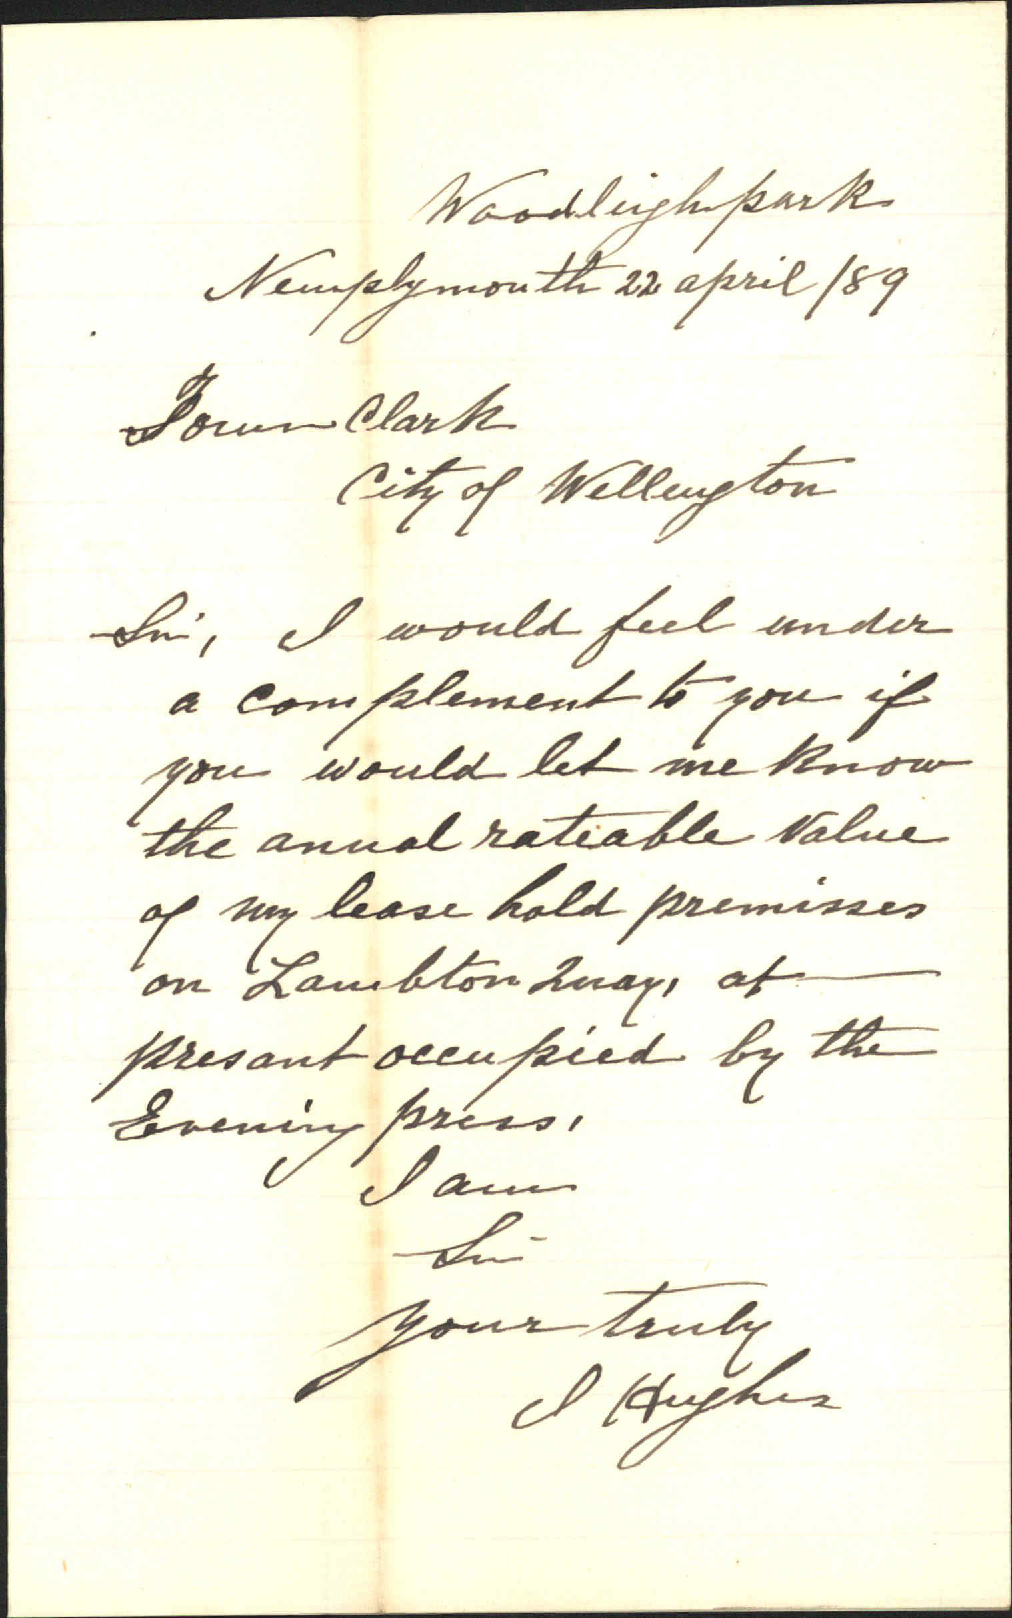 Woodleigh park
Newplymouth 22 april /89
Town Clark
City of Wellington
Sir, I would feel under
a complement to you if
you would let me know
the anual rateable Value
of my lease hold premisses
on Lambton Quay, at
presant occupied by the
Evening press,
I am
Sir
your truly
I Hughes